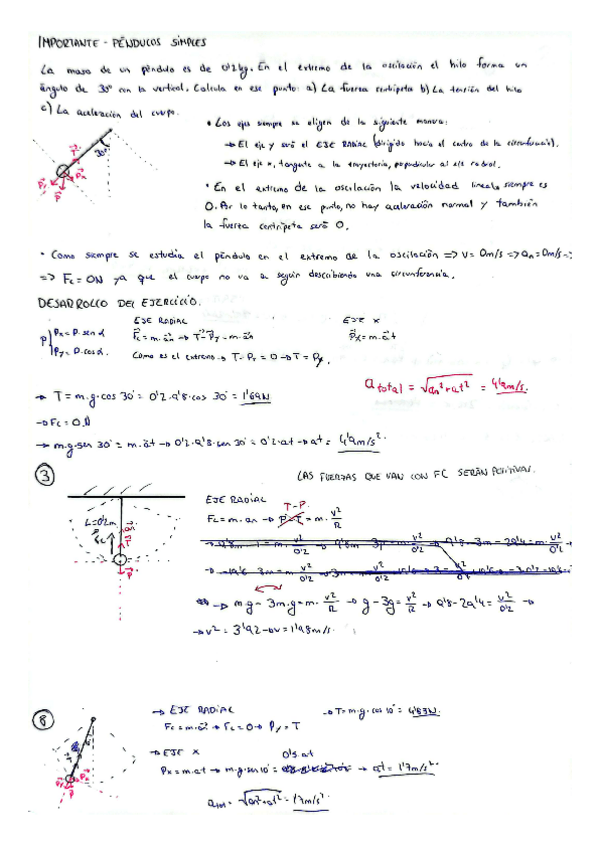 IMPORTANTE - PÉNDULOS SIMPLES
La masa de un péndulo es de 0'2kg. En el extremo de la oscilación el hilo forma un
ángulo de 30º con la vertical. Calcula en ese punto: a) La fuerza centrípeta b) La tensión del hilo
c) La aceleración del cuerpo.
• Los ejes siempre se eligen de la siguiente manera:
→ El eje y será el EJE RADIAL (dirigido hacia el centro de la circunferencia).
→ El eje x, tangente a la trayectoria, perpendicular al eje radial.
30º
T
Px
Py
P
• En el extremo de la oscilación la velocidad lineal siempre es
0. Por lo tanto, en ese punto, no hay aceleración normal y también
la fuerza centrípeta será 0.
• Como siempre se estudia el péndulo en el extremo de la oscilación => v = 0m/s => an = 0m/s
=> Fc = 0N ya que el cuerpo no va a seguir describiendo una circunferencia.
DESARROLLO DEL EJERCICIO.
EJE RADIAL
EJE X
P Px = P·sen α
Py = P·cos α
Fc = m·an → T - Py = m·an
Px = m·at
Como es el extremo → T - Py = 0 → T = Py
a total = √an²+at² = 4'9m/s.
→ T = m·g·cos 30 = 0'2·9'8·cos 30 = 1'69N
→ Fc = 0N
→ m·g·sen 30 = m·at → 0'2·9'8·sen 30 = 0'2·at → at = 4'9m/s²
3
LAS FUERZAS QUE VAN CON FC SERÁN POSITIVAS.
EJE RADIAL
T-P
Fc = m·an → P-T = m· v²/R
L=0'2m
Fc
an
T
P
→ mg - 3m·g = m· v²/R → g - 3g = v²/R → 9'8 - 29'4 = v²/0'2 →
→ v² = 3'92 → v = 1'98m/s.
8
→ EJE RADIAL
→ T = m·g·cos 10 = 4'83N
Fc = m·an → Fc = 0 → Py = T
→ EJE X
0'5·at
Px = m·at → m·g·sen 10 = → at = 1'7m/s²
= √an²+at² = 1'7m/s²